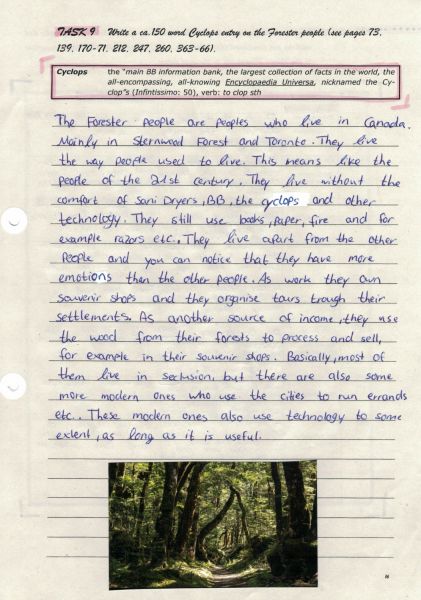 TASK 9 Write a ca.150 word Cyclops entry on the Forester people (see pages 73,
139, 170-71, 212, 247, 260, 363-66).
Cyclops the "main BB information bank, the largest collection of facts in the world, the
all-encompassing, all-knowing Encyclopaedia Universa, nicknamed the Cy-
clop"s (Infintissimo: 50), verb: to clop sth
The Forester people are peoples who live in Canada.
Mainly in Sternwood Forest and Toronto. They live
the way people used to live. This means like the
people of the 21st century. They live without the
comfort of Sani Dryers, BB, the cyclops and other
technology. They still use books, paper, fire and for
example razors etc.. They live apart from the other
people and you can notice that they have more
emotions then the other people. As work they own
souvenir shops and they organise tours trough their
settlements. As another source of income, they use
the wood from their forests to process and sell,
for example in their souvenir shops. Basically, most of
them live in seclusion, but there are also some
more modern ones who use the cities to run errands
etc.. These modern ones also use technology to some
extent, as long as it is useful.
16